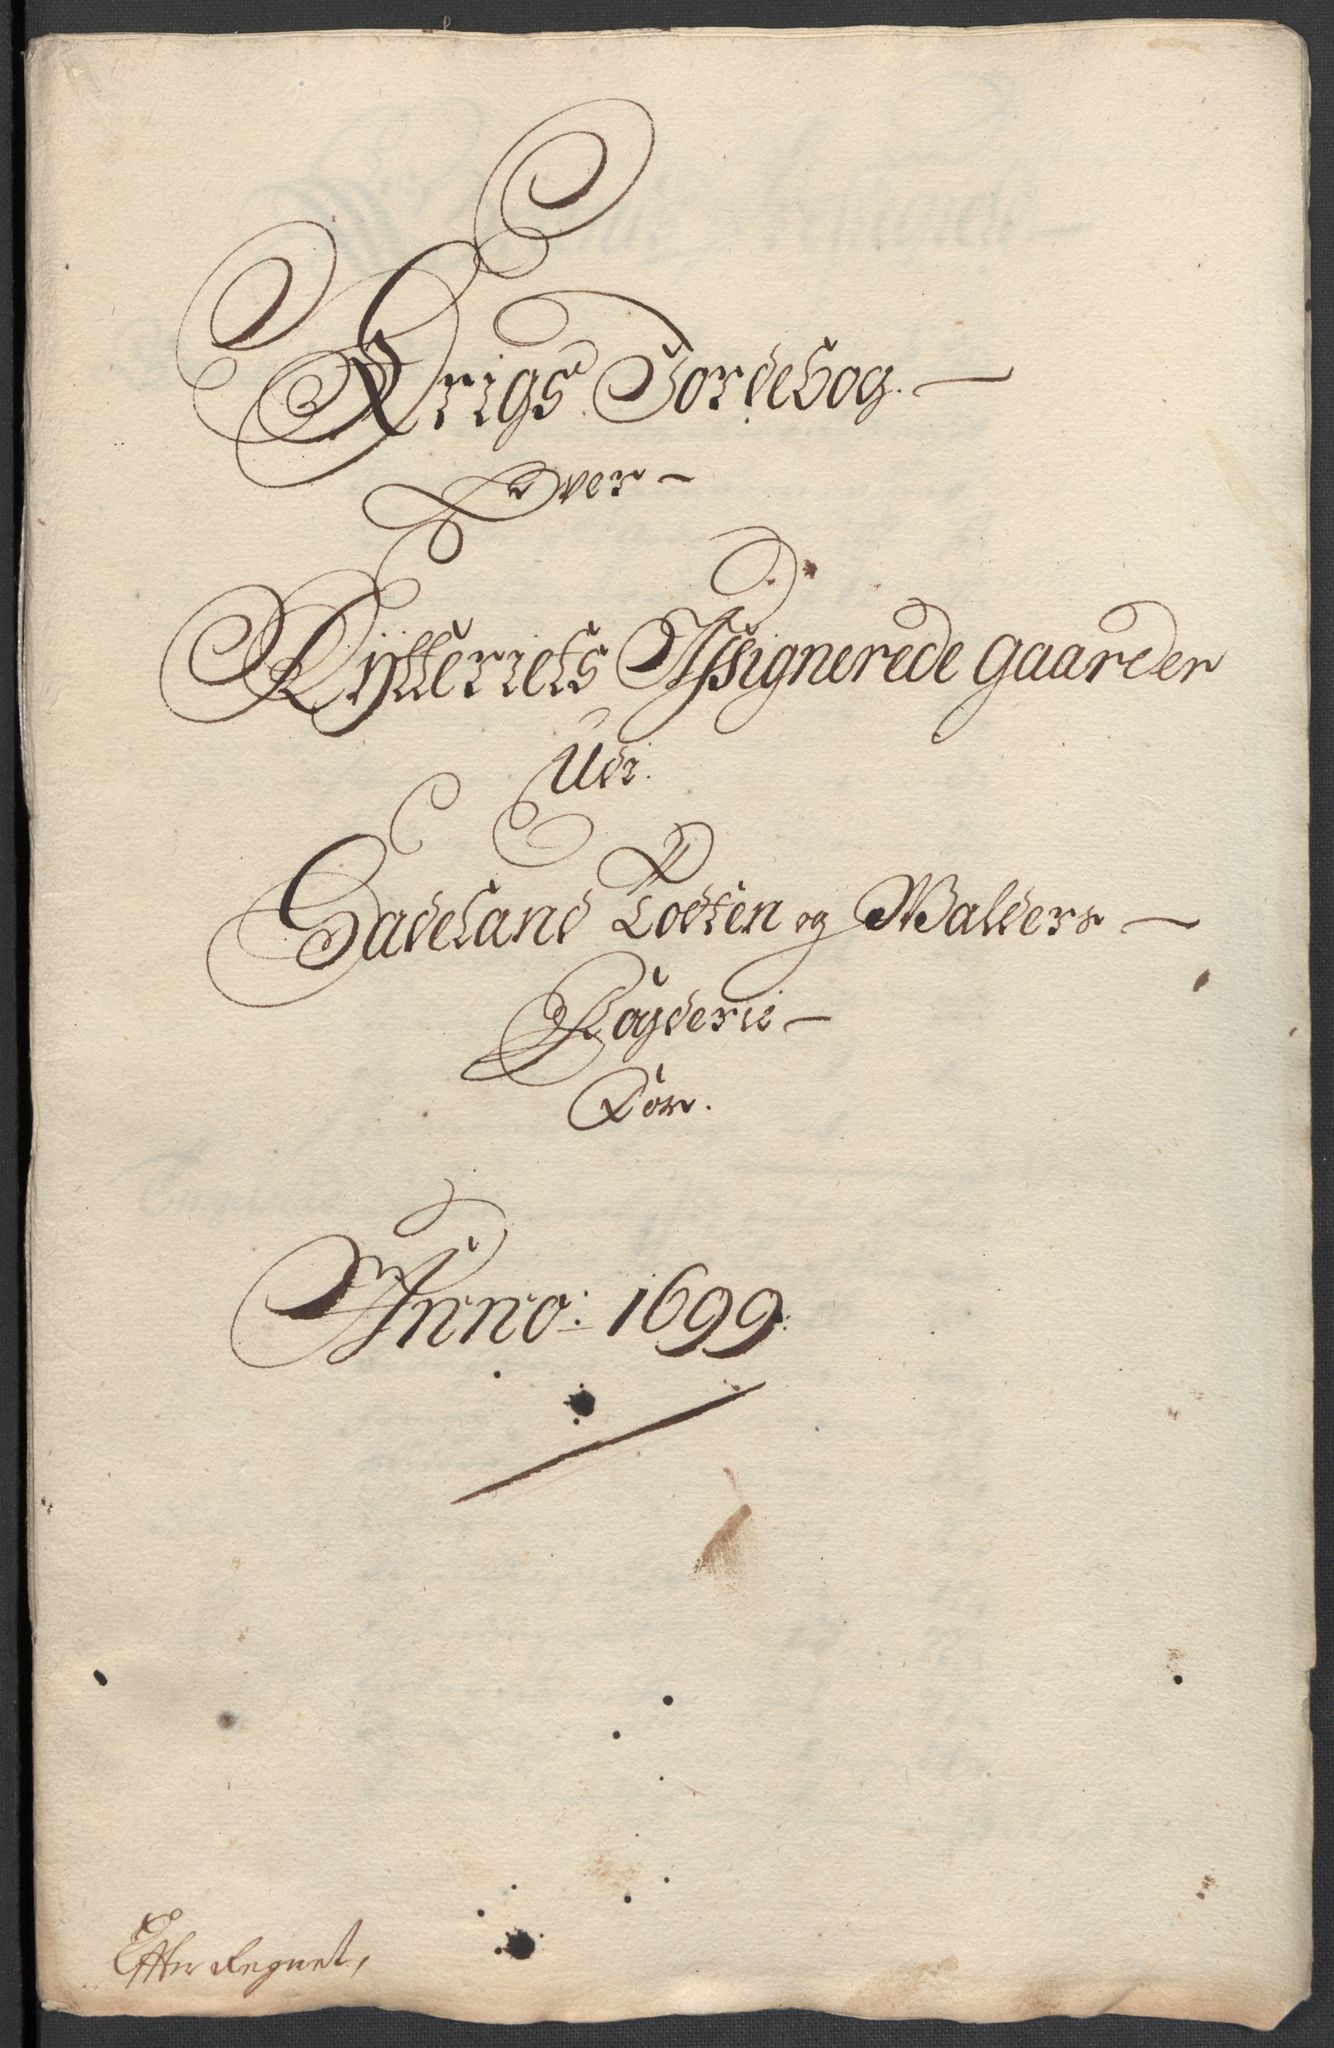 Krigs Jordebog. —
Over —
Rÿtteriets Assignerede gaarder
Udi.
Hadeland Todten og Walders —
Fogderie —
For.
Anno: 1699:
Efter Regnet,